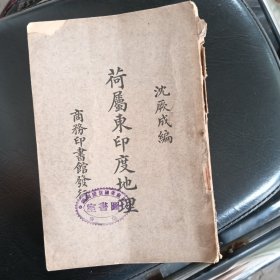 沈厥成編
荷屬東印度地理
商務印書館發行
圖書室